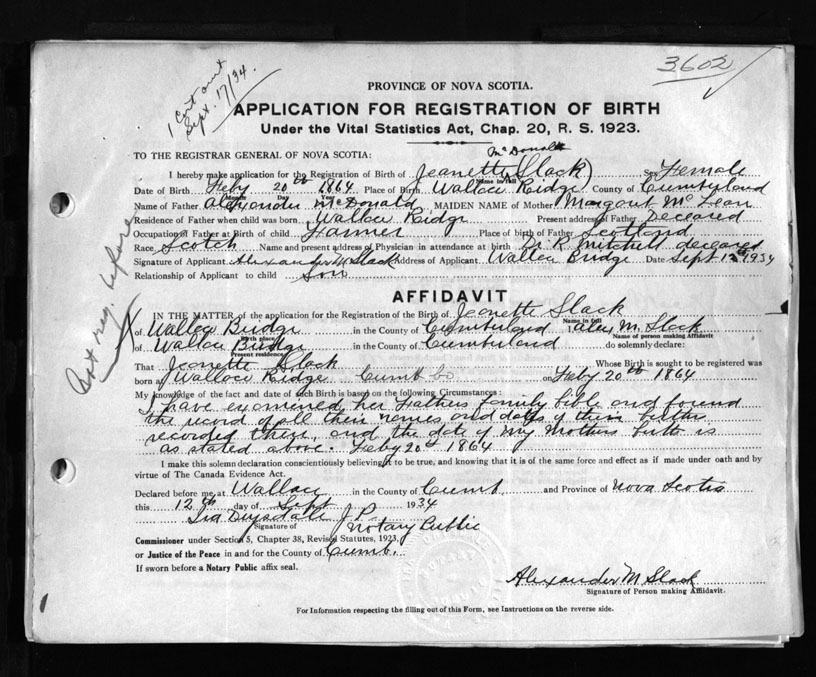 3602
1 Cert out
Sept. 17/34.
PROVINCE OF NOVA SCOTIA.
APPLICATION FOR REGISTRATION OF BIRTH
Under the Vital Statistics Act, Chap. 20, R. S. 1923.
TO THE REGISTRAR GENERAL OF NOVA SCOTIA:
McDonald
I hereby make application for the Registration of Birth of Jeanette (Slack) Sex Female
Name in full
Date of Birth Feby 20th 1864 Place of Birth Wallace Ridge County of Cumberland
Month Day Year
Name of Father Alexander McDonald, MAIDEN NAME of Mother Margaret McLean
Residence of Father when child was born, Wallace Ridge Present address of Father Deceased
Occupation of Father at Birth of child Farmer Place of birth of Father Scotland
Race Scotch Name and present address of Physician in attendance at birth Dr. R. Mitchell deceased
Signature of Applicant Alexander M Slack Address of Applicant Wallace Bridge Date Sept 12th 1934
Relationship of Applicant to child Son
Not reg. before
AFFIDAVIT
IN THE MATTER of the application for the Registration of the Birth of Jeanette Slack
Name in full
X of Wallace Bridge in the County of Cumberland I, Alex M. Slack
Birth place Name of person making Affidavit
of Wallace Bridge in the County of Cumberland do solemnly declare:
Present residence
That Jeanette Slack Whose Birth is sought to be registered was
born at Wallace Ridge Cumb Co on Feby 20th 1864
My knowledge of the fact and date of such Birth is based on the following Circumstances:
I have examined her Fathers family bible and found
the record of all their names and dates of their births
recorded there, and the date of my Mothers birth is
as stated above. Feby 20th 1864
I make this solemn declaration conscientiously believing it to be true, and knowing that it is of the same force and effect as if made under oath and by
virtue of The Canada Evidence Act.
Declared before me at Wallace in the County of Cumb. and Province of Nova Scotia
this 12th day of Sept 1934
Ira Drysdale J.P.
Signature of Notary Public
Commissioner under Section 5, Chapter 38, Revised Statutes, 1923,
or Justice of the Peace in and for the County of Cumb.
If sworn before a Notary Public affix seal.
Alexander M Slack
Signature of Person making Affidavit.
For Information respecting the filling out of this Form, see Instructions on the reverse side.